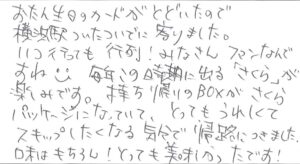 おたん生日のカードがとどいたので
横浜駅ついたついでに寄りました。
いつ行っても行列!みなさんファンなんで
すね 毎年この時期に出る「さくら」が
楽しみです。持ち帰りのBOXがさくら
パッケージになっていて、とってもうれしくて
スキップしたくなる気分で帰路につきました。
味はもちろん!とっても美味しかったです!